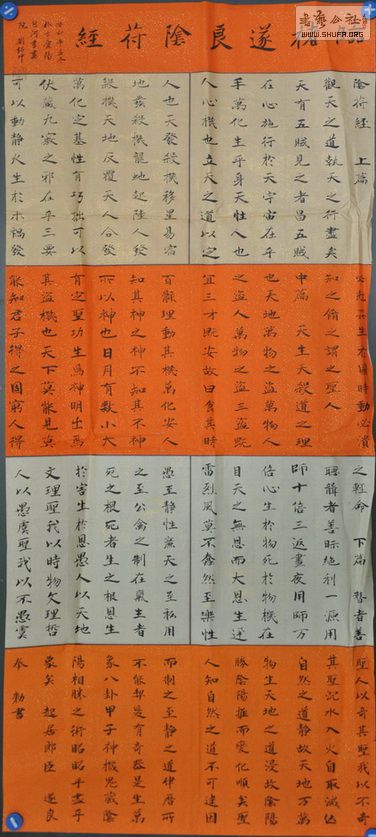 書藝公社
WWW.SHUFR.COM
臨褚遂良陰符經
陰符經 上篇
觀天之道執天之行盡矣
天有五賊見之者昌五賊
在心施行於天宇宙在乎
手萬化生乎身天性人也
人心機也立天之道以定
人也天發殺機移星易宿
地發殺機龍虵起陸人發
殺機天地反覆天人合發
萬化定基性有巧拙可以
伏藏九竅之邪在乎三要
可以動靜火生於木禍發
必克姦生於國時動必潰
知之脩之謂之聖人
中篇 天生天殺道之理
也天地萬物之盜萬物人
之盜人萬物之盜三盜既
宜三才既安故曰食其時
百骸理動其機萬化安人
知其神之神不知其不神
所以神也日月有數小大
有定聖功生焉神明出焉
其盜機也天下莫能見莫
能知君子得之固窮人得
之輕命 下篇 瞽者善
聽聾者善眎絕利一源用
師十倍三返晝夜用師万
倍心生於物死於物機在
目天之無恩而大恩生迅
雷烈風莫不蠢然至樂性
愚至靜性廉天之至私用
之至公禽之制在氣生者
死之根死者生之根恩生
於害生於恩愚人以天地
文理聖我以時物文理哲
人以愚虞聖我以不愚虞
聖人以奇其聖我以不奇
其聖沉水入火自取滅亡
自然之道靜故天地万萬
物生天地之道浸故陰陽
勝陰陽推而變化順矣聖
人知自然之道不可違因
而制之至靜之道律曆所
不能契是有奇器是生萬
象八卦甲子神機鬼藏陰
陽相勝之術昭昭乎盡乎
象矣 起居郎臣 遂良
奉 勅書